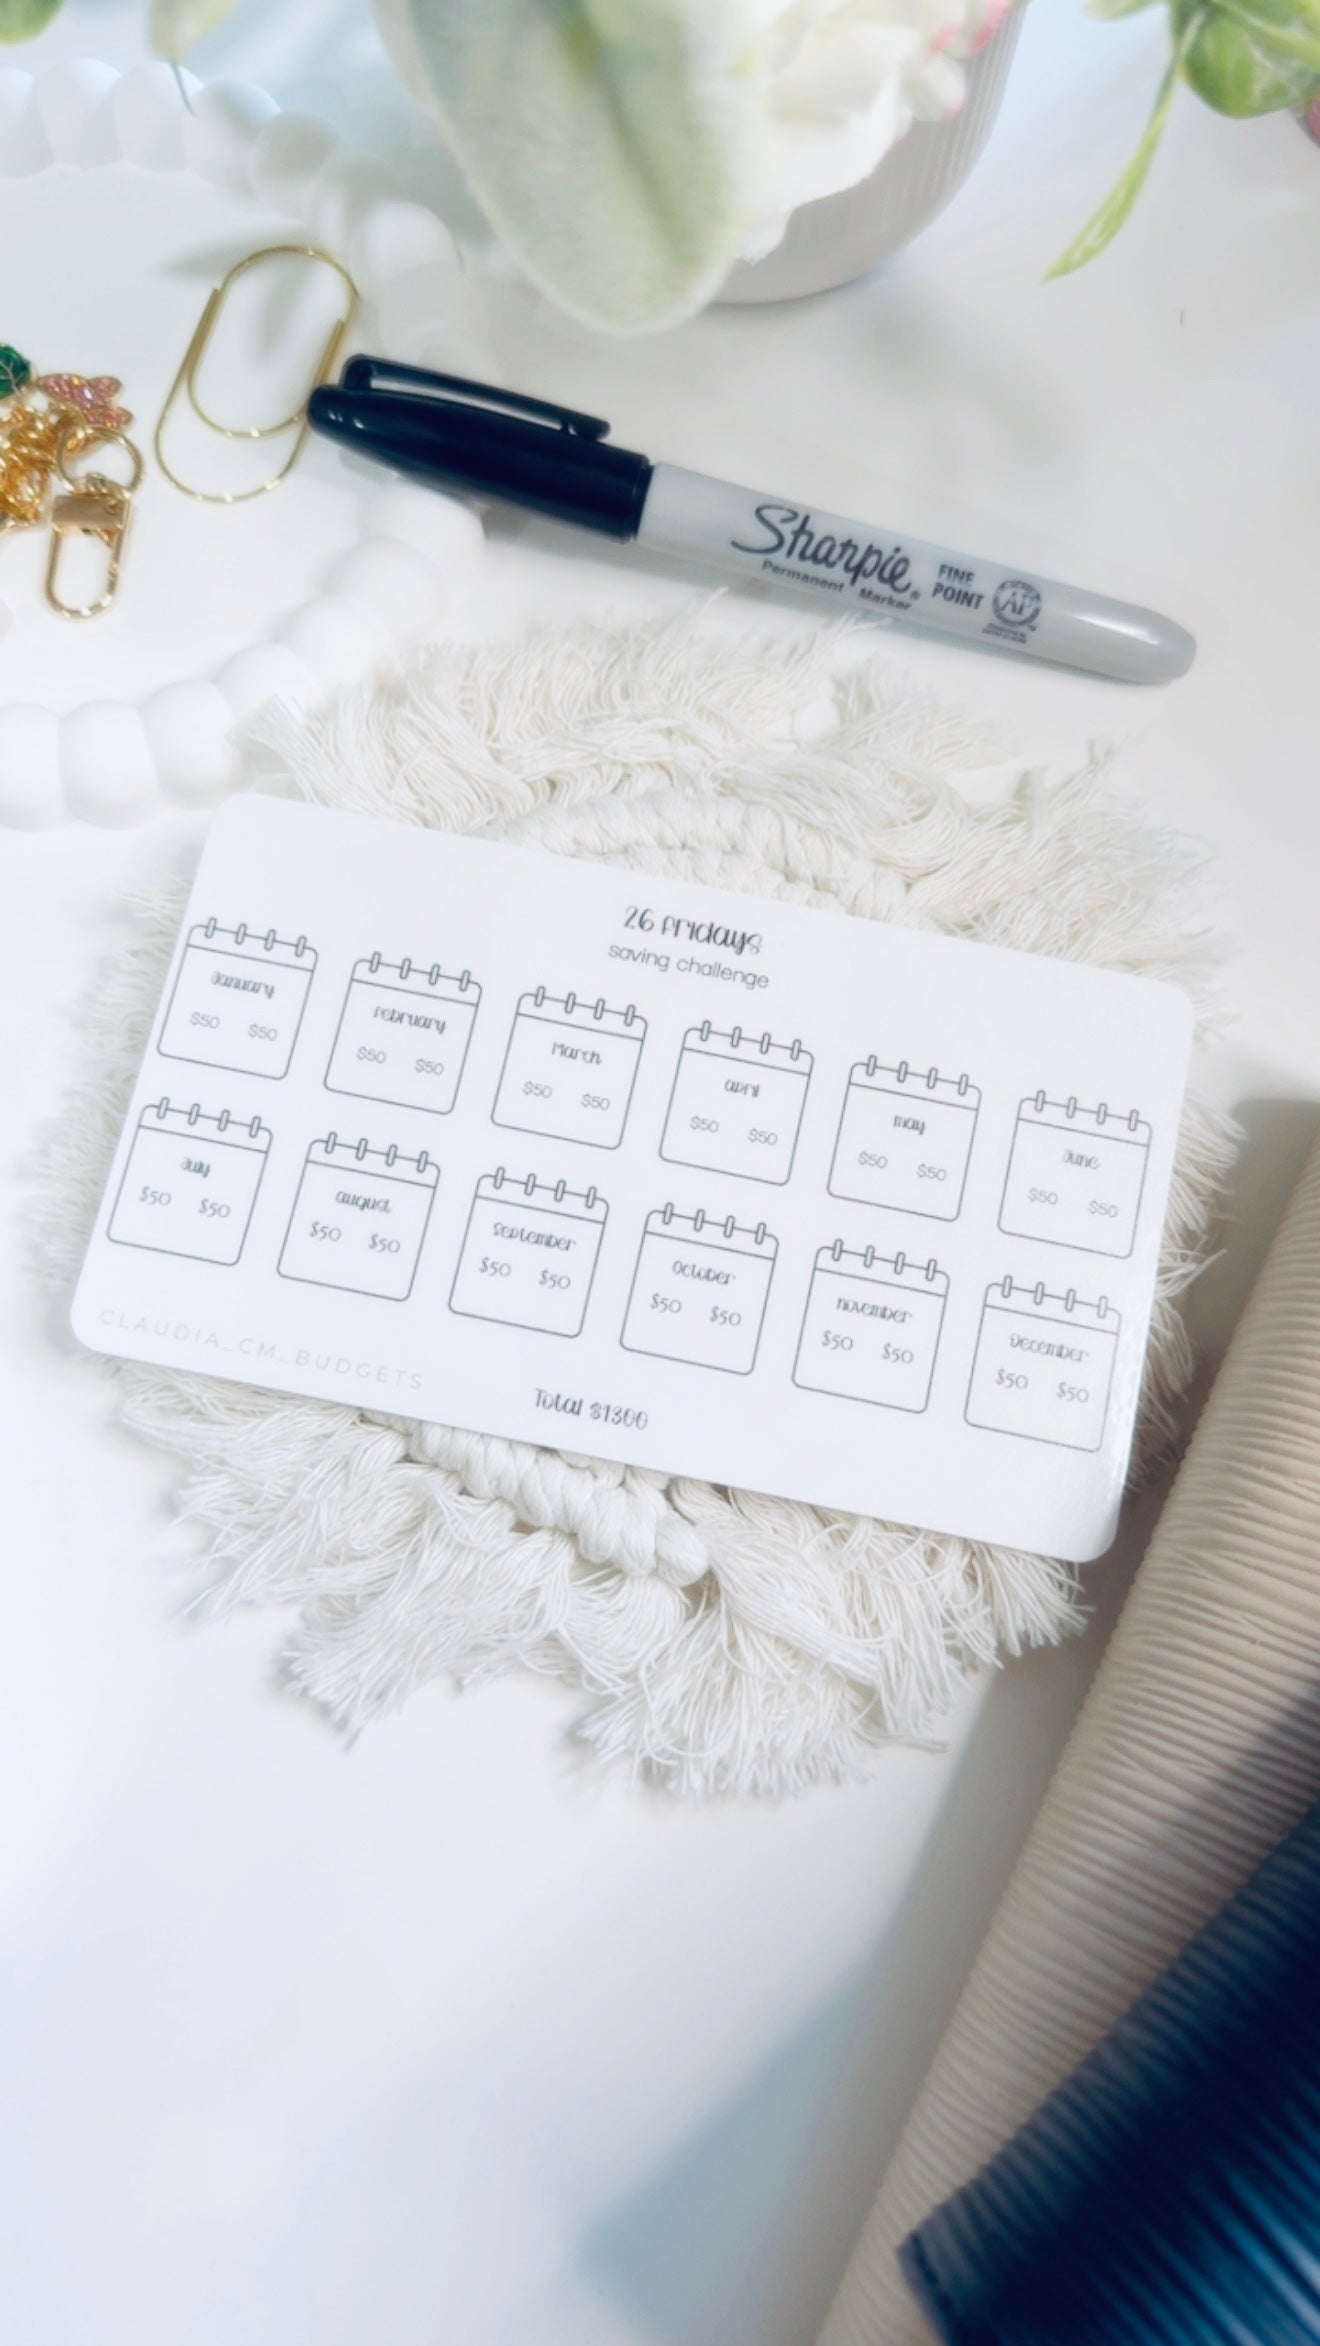 Sharpie®
Permanent Marker
FINE
POINT
AP
26 Fridays
saving challenge
January
$50 $50
February
$50 $50
March
$50 $50
April
$50 $50
May
$50 $50
June
$50 $50
July
$50 $50
August
$50 $50
September
$50 $50
October
$50 $50
November
$50 $50
December
$50 $50
CLAUDIA_CM_BUDGETS
Total $1300